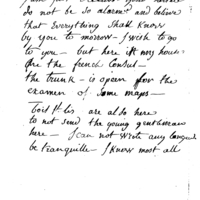 do not be so alarmed and believe
that Everything shall Know
by you to morrow - I wish to go
to you - but here is my house
are the french Consul -
the trunk - is open for the
examen of some maps -
are also here
to not send the young gentleman
here - I can not write any
be tranquille - I Know most all